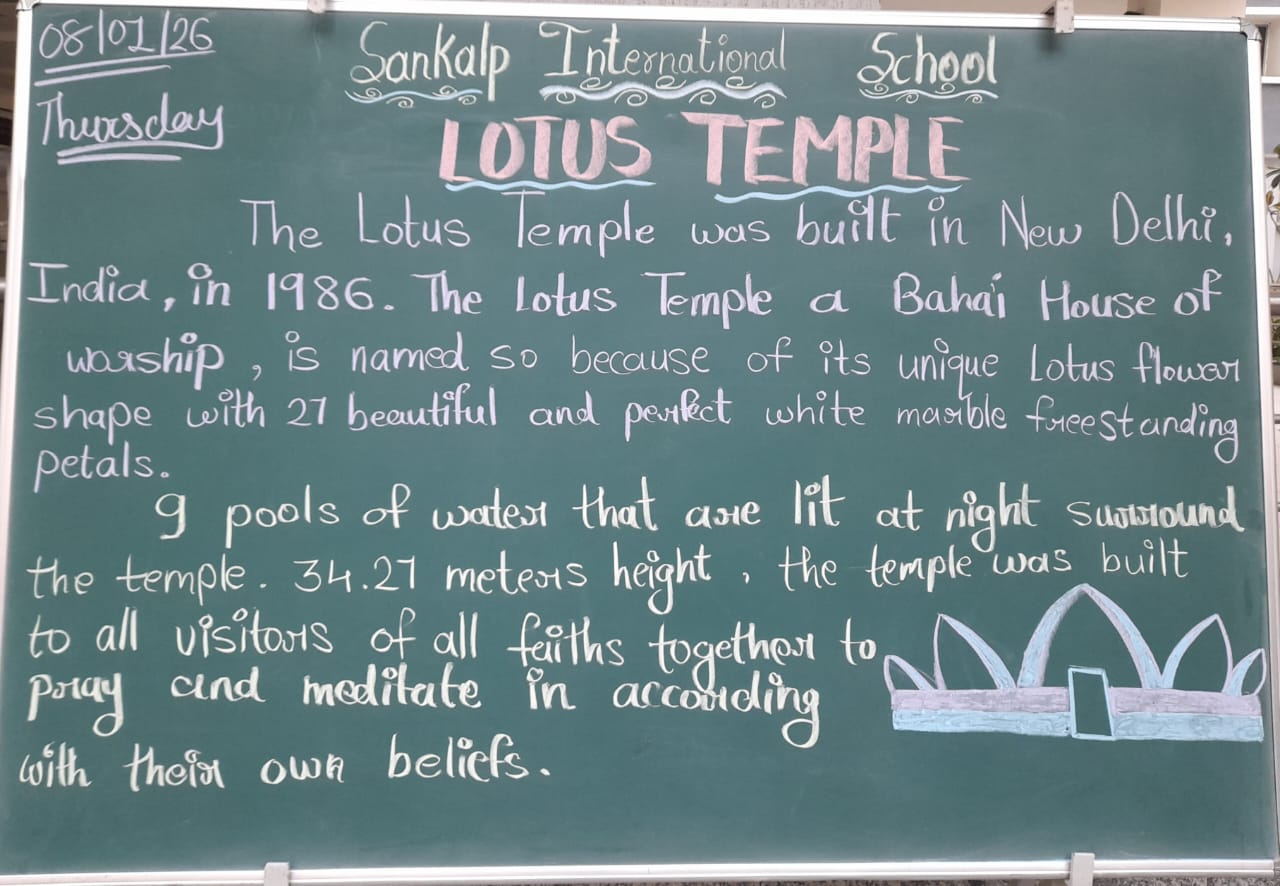 08/01/26
Thursday
Sankalp International School
LOTUS TEMPLE
The Lotus Temple was built in New Delhi,
India, in 1986. The Lotus Temple a Bahai House of
worship, is named so because of its unique Lotus flower
shape with 27 beautiful and perfect white marble freestanding
petals.
9 pools of water that are lit at night surround
the temple. 34.27 meters height, the temple was built
to all visitors of all faiths together to
pray and meditate in according
with their own beliefs.